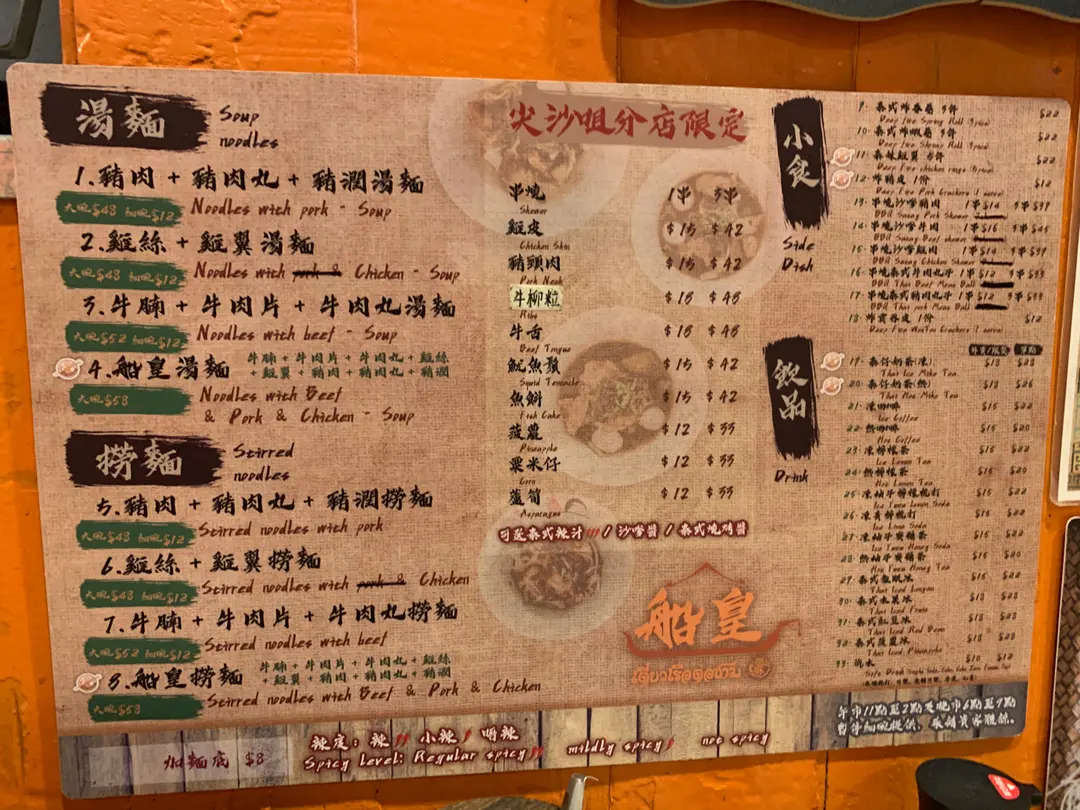 湯麵
Soup
noodles
1.豬肉 + 豬肉丸 + 豬潤湯麵
大碗$48 加碗$12
Noodles with pork - Soup
2.雞絲 + 雞翼湯麵
大碗$48 加碗$12
Noodles with pork & Chicken - Soup
3.牛腩 + 牛肉片 + 牛肉丸湯麵
大碗$52 加碗$12
Noodles with beef - Soup
4.船皇湯麵
牛腩 + 牛肉片 + 牛肉丸 + 雞絲
+ 雞翼 + 豬肉 + 豬肉丸 + 豬潤
大碗$58
Noodles with Beef
& Pork & Chicken - Soup
撈麵
Stirred
noodles
5.豬肉 + 豬肉丸 + 豬潤撈麵
大碗$48 加碗$12
Stirred noodles with pork
6.雞絲 + 雞翼撈麵
大碗$48 加碗$12
Stirred noodles with pork & Chicken
7.牛腩 + 牛肉片 + 牛肉丸撈麵
大碗$52 加碗$12
Stirred noodles with beef
8.船皇撈麵
牛腩 + 牛肉片 + 牛肉丸 + 雞絲
+ 雞翼 + 豬肉 + 豬肉丸 + 豬潤
大碗$58
Stirred noodles with Beef & Pork & Chicken
加麵底 $8
辣度: 辣 小辣 唔辣
Spicy Level: Regular spicy mildly spicy not spicy
尖沙咀分店限定
串燒 1串 3串
Skewer
雞皮 $15 $42
Chicken Skin
豬頸肉 $15 $42
Pork Neck
牛柳粒 $18 $48
Ribs
牛舌 $18 $48
Beef Tongue
魷魚鬚 $15 $42
Squid Tentacle
魚餅 $15 $42
Fish Cake
菠蘿 $12 $33
Pineapple
粟米仔 $12 $33
Corn
蘆筍 $12 $33
Asparagus
可選泰式辣汁 / 沙嗲醬 / 泰式燒烤醬
船皇
小炙
Side
Dish
9. 泰式炸春卷 3件 $22
Deep Fire Spring Roll
10. 泰式炸蝦卷 3件
Deep Fire Shrimp Roll
11. 泰妹雞翼 5件 $22
Deep Fire chicken rings
12. 炸豬皮 1份 $12
Deep Fire Pork Crackers
13. 串燒沙嗲豬肉 1串$14 3串$39
BBQ Saaay Pork Skewer
14. 串燒沙嗲牛肉 1串$16 3串$45
BBQ Saaay Beef skewer
15. 串燒沙嗲雞肉 1串$14 3串$39
BBQ Saaay Chicken Skewer
16. 串燒泰式牛肉丸子 1串$12 3串$33
BBQ Thai Beef Meat Ball
17. 串燒泰式豬肉丸子 1串$12 3串$33
BBQ Thai pork Meat Ball
18. 炸雲吞皮 1份 $12
飲品
Drink
19. 泰仔奶茶(凍) $18 $28
Thai Ice Milk Tea
20. 泰仔奶茶(熱) $18 $26
21. 凍咖啡 $16 $22
Ice Coffee
22. 熱咖啡 $15 $20
Hot Coffee
23. 凍檸檬茶 $16 $22
Ice Lemon Tea
24. 熱檸檬茶 $15 $20
Hot Lemon Tea
25. 凍柚子檸檬梳打 $16 $22
Ice Yuzu Lemon Soda
26. 凍青檸梳打 $16 $22
Ice Lime Soda
27. 凍柚子蜜 $16 $22
28. 熱柚子蜜 $15 $20
29. 泰式龍眼冰 $16 $22
Thai Iced Longan
30. 泰式水果冰 $18 $28
Thai Iced Fruit
31. 泰式紅豆冰 $18 $28
Thai Iced Red Bean
32. 泰式菠蘿冰 $18 $28
Thai Iced Pineapple
33. 汽水 $10 $12
午市11點至2點及晚市6點至9點
暫停細碗提供, 敬請貴客體諒.